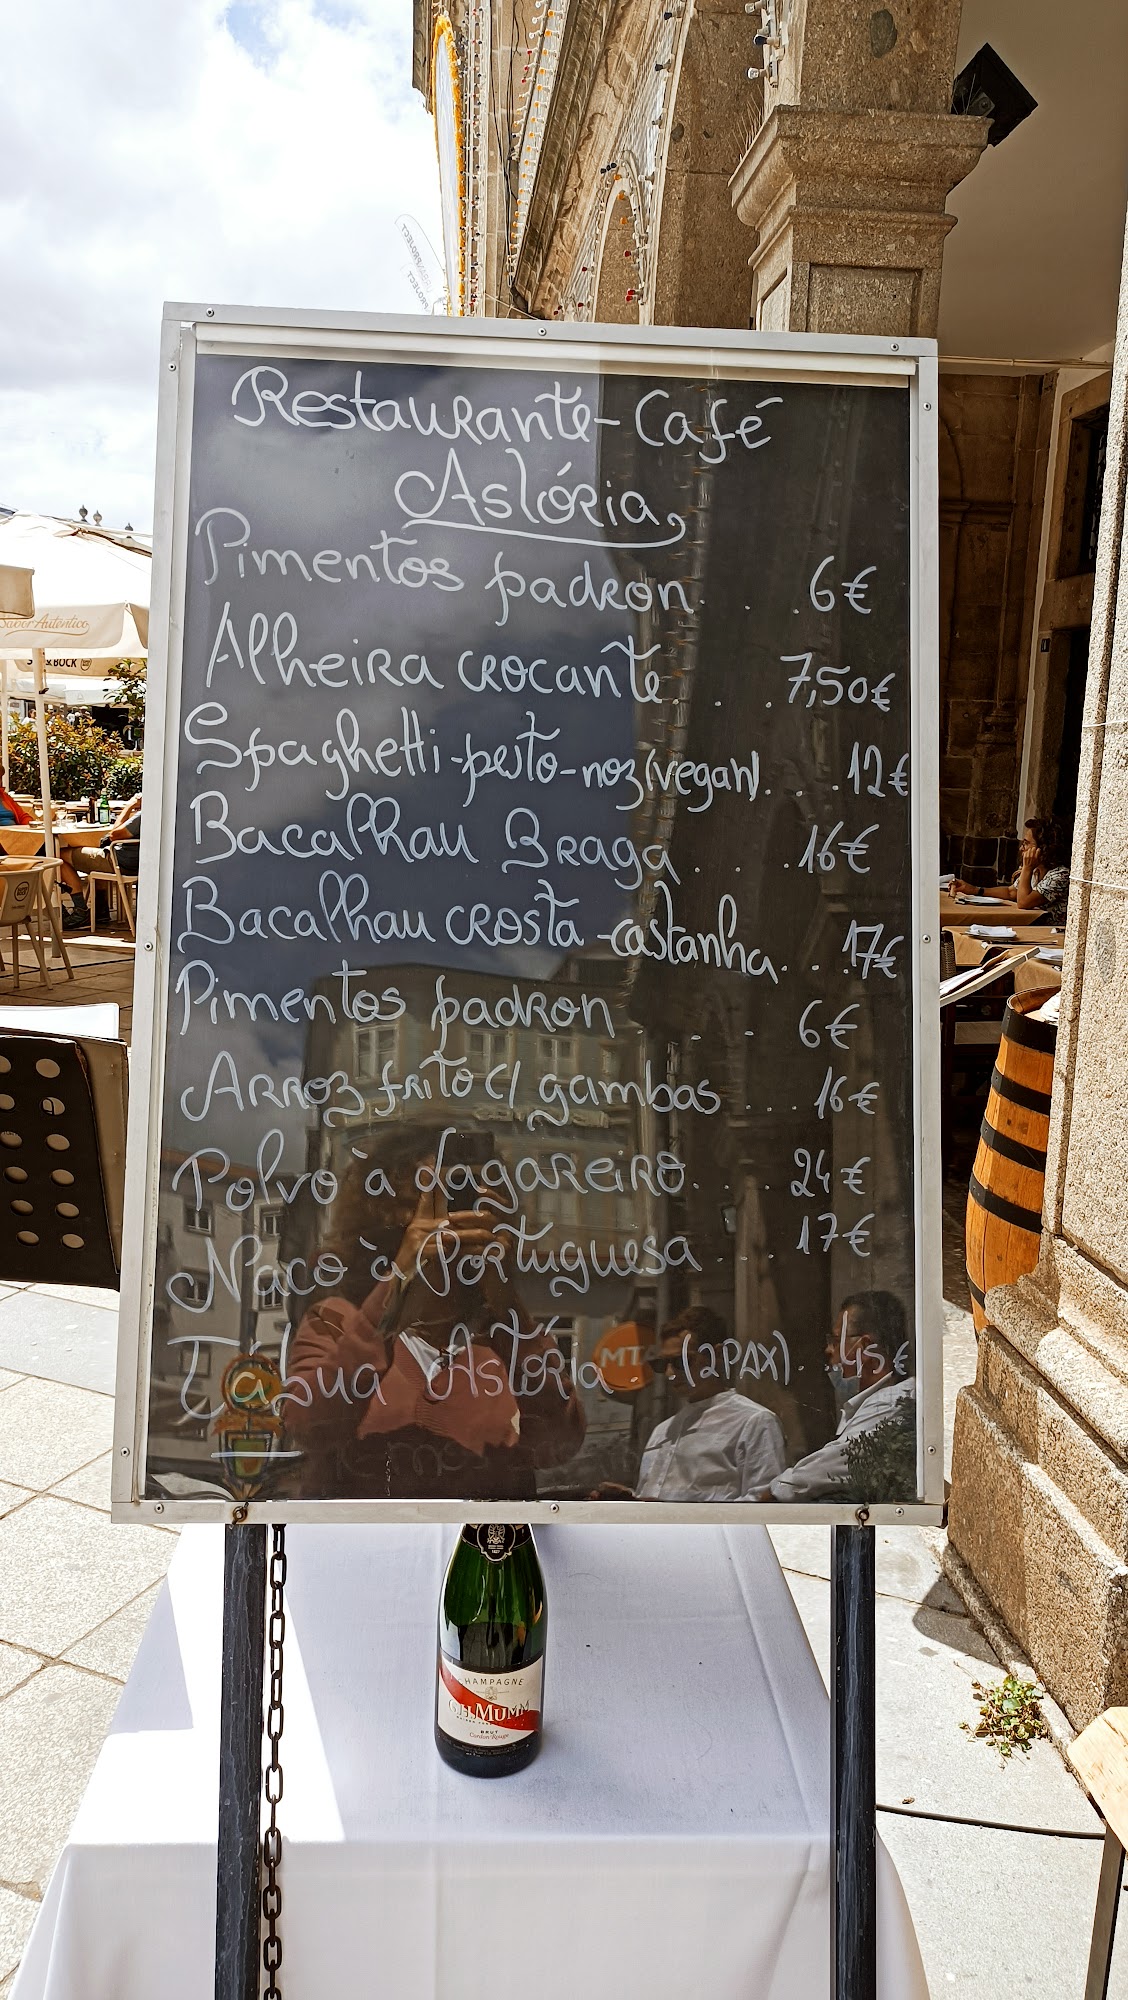 Restaurante-Café
Astória
Pimentos padron. . . 6€
Alheira crocante. . . 7,50€
Spaghetti-pesto-noz(vegan). . . 12€
Bacalhau Braga. . . 16€
Bacalhau crosta-castanha. . . 17€
Pimentos padron . . 6€
Arroz frito c/ gambas ... 16€
Polvo à Lagareiro. . . 24€
Naco à Portuguesa . . . 17€
Tábua Astória . . (2PAX) . . 45€
Sabor Autêntico
& BOCK
PROJECT
MT
CHAMPAGNE
G.H.MUMM
BRUT
Cordon Rouge